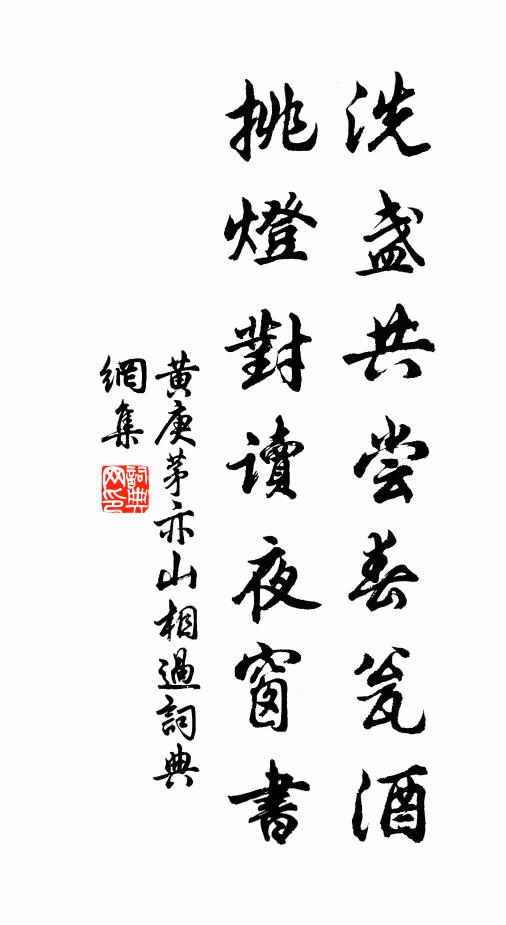 洗盏共尝春瓮酒
挑燈對讀夜窗書
黃庚茅亦山相過詞典
網集
詞典網印